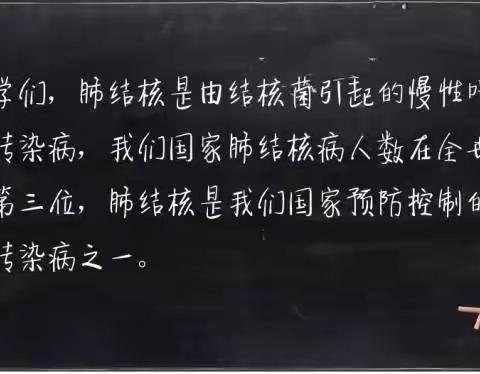 学们，肺结核是由结核菌引起的慢性呼
传染病，我们国家肺结核病人数在全世
第三位，肺结核是我们国家预防控制的
传染病之一。